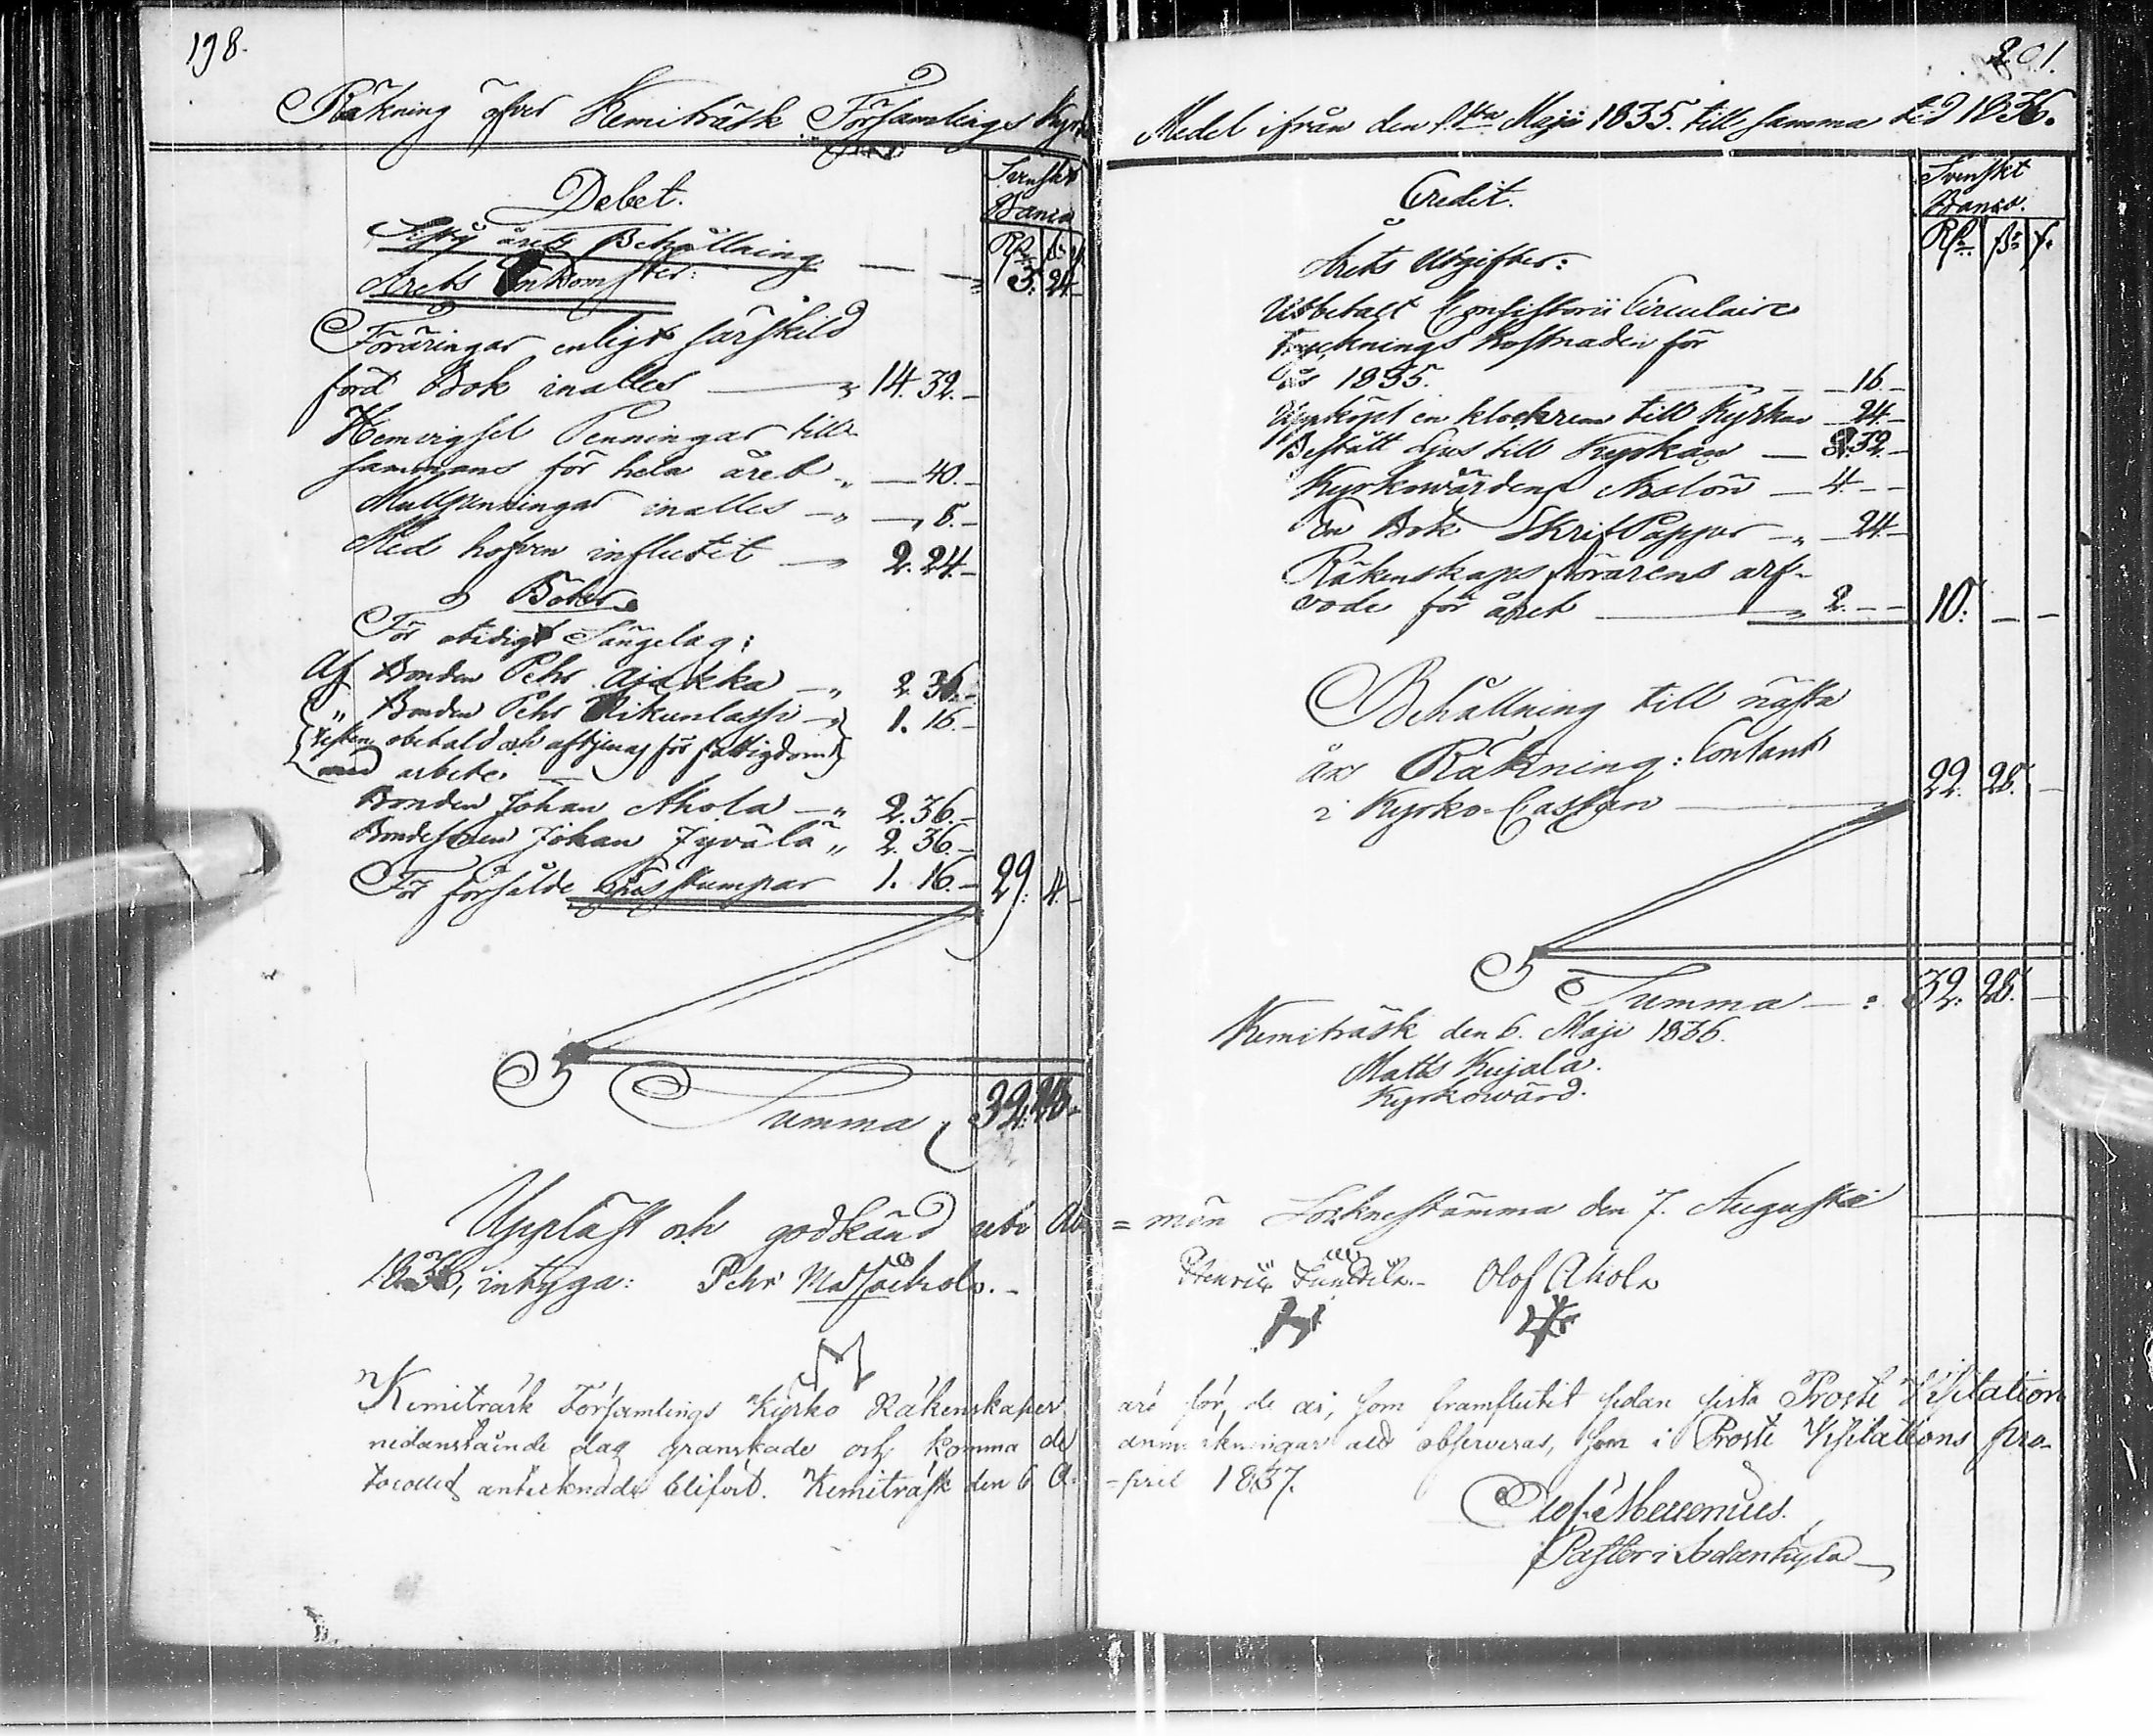 198.
Räkning öfver Kemiträsk Församlings Kyrko
Debet.
Svenskt
Banco
Rd. s. r.
Sistl. års Behållning — — „ 3. 24. –
Årets Inkomster:
Föräringar enligt särskild
förd Bok inalles — „ 14. 32. –
Hemvigsel Penningar till-
sammans för hela året „ — 40. –
Mullpenningar inalles — „ — „ 8. –
Med hofven influtit — „ 2. 24. –
Böter
För otidigt Sängelag:
Af Bonden Pehr Ajakka — „ 2. 36. –
„ Bonden Pehr Rikunlassi — „ 1. 16. –
resten obetald och aftjenas för fattigdom
med arbete.
Bonden Johan Ahola — „ 2. 36. –
Bondesonen Johan Jyvälä „ 2. 36. –
För försålde ljusstumpar 1. 16. – 29. 4. –
Summa 32. 28. –
Uppläst och godkänd uti All-
1836, intyga: Pehr
Kemiträsk Församlings Kyrko Räkenskaper
nedanstående dag granskade och komma de
tocollet antecknade blifvit. Kemiträsk den 6 A-
201.
Medel ifrån den 1sta Maji 1835. till samma tid 1836.
Credit.
Svenskt
Banco.
Rd. s. r.
Årets Utgifter:
Utbetalt Consistorii Circulaire
trycknings kostnaden för
års 1835. — — 16. –
Uppköpt en klockrem till Kyrkan — 24. –
Bestått Ljus till Kyrkan — 2. 32. –
Kyrkowärdens Årslön — 4. – –
En Bok Skrif Papper — „ — 24. –
Räkenskaps förarens arf-
vode för året — „ 2. – – 10. — –
Behållning till nästa
års Räkning: Contant
i Kyrko-Cassan — 22. 28. –
Summa — : 32. 28. –
Kemiträsk den 6. Maji 1836.
Matts Kujala.
Kyrkowärd.
= män Socknestämma den 7. Augusti
Henric Olof Ahola
äro för, de år, som framflutit sedan sista Prosté Visitation
anmärkningar att observeras, som i Prosté Visitations pro-
-pril 1837.
Olof Mellenius.
Pastor i Sodankylä